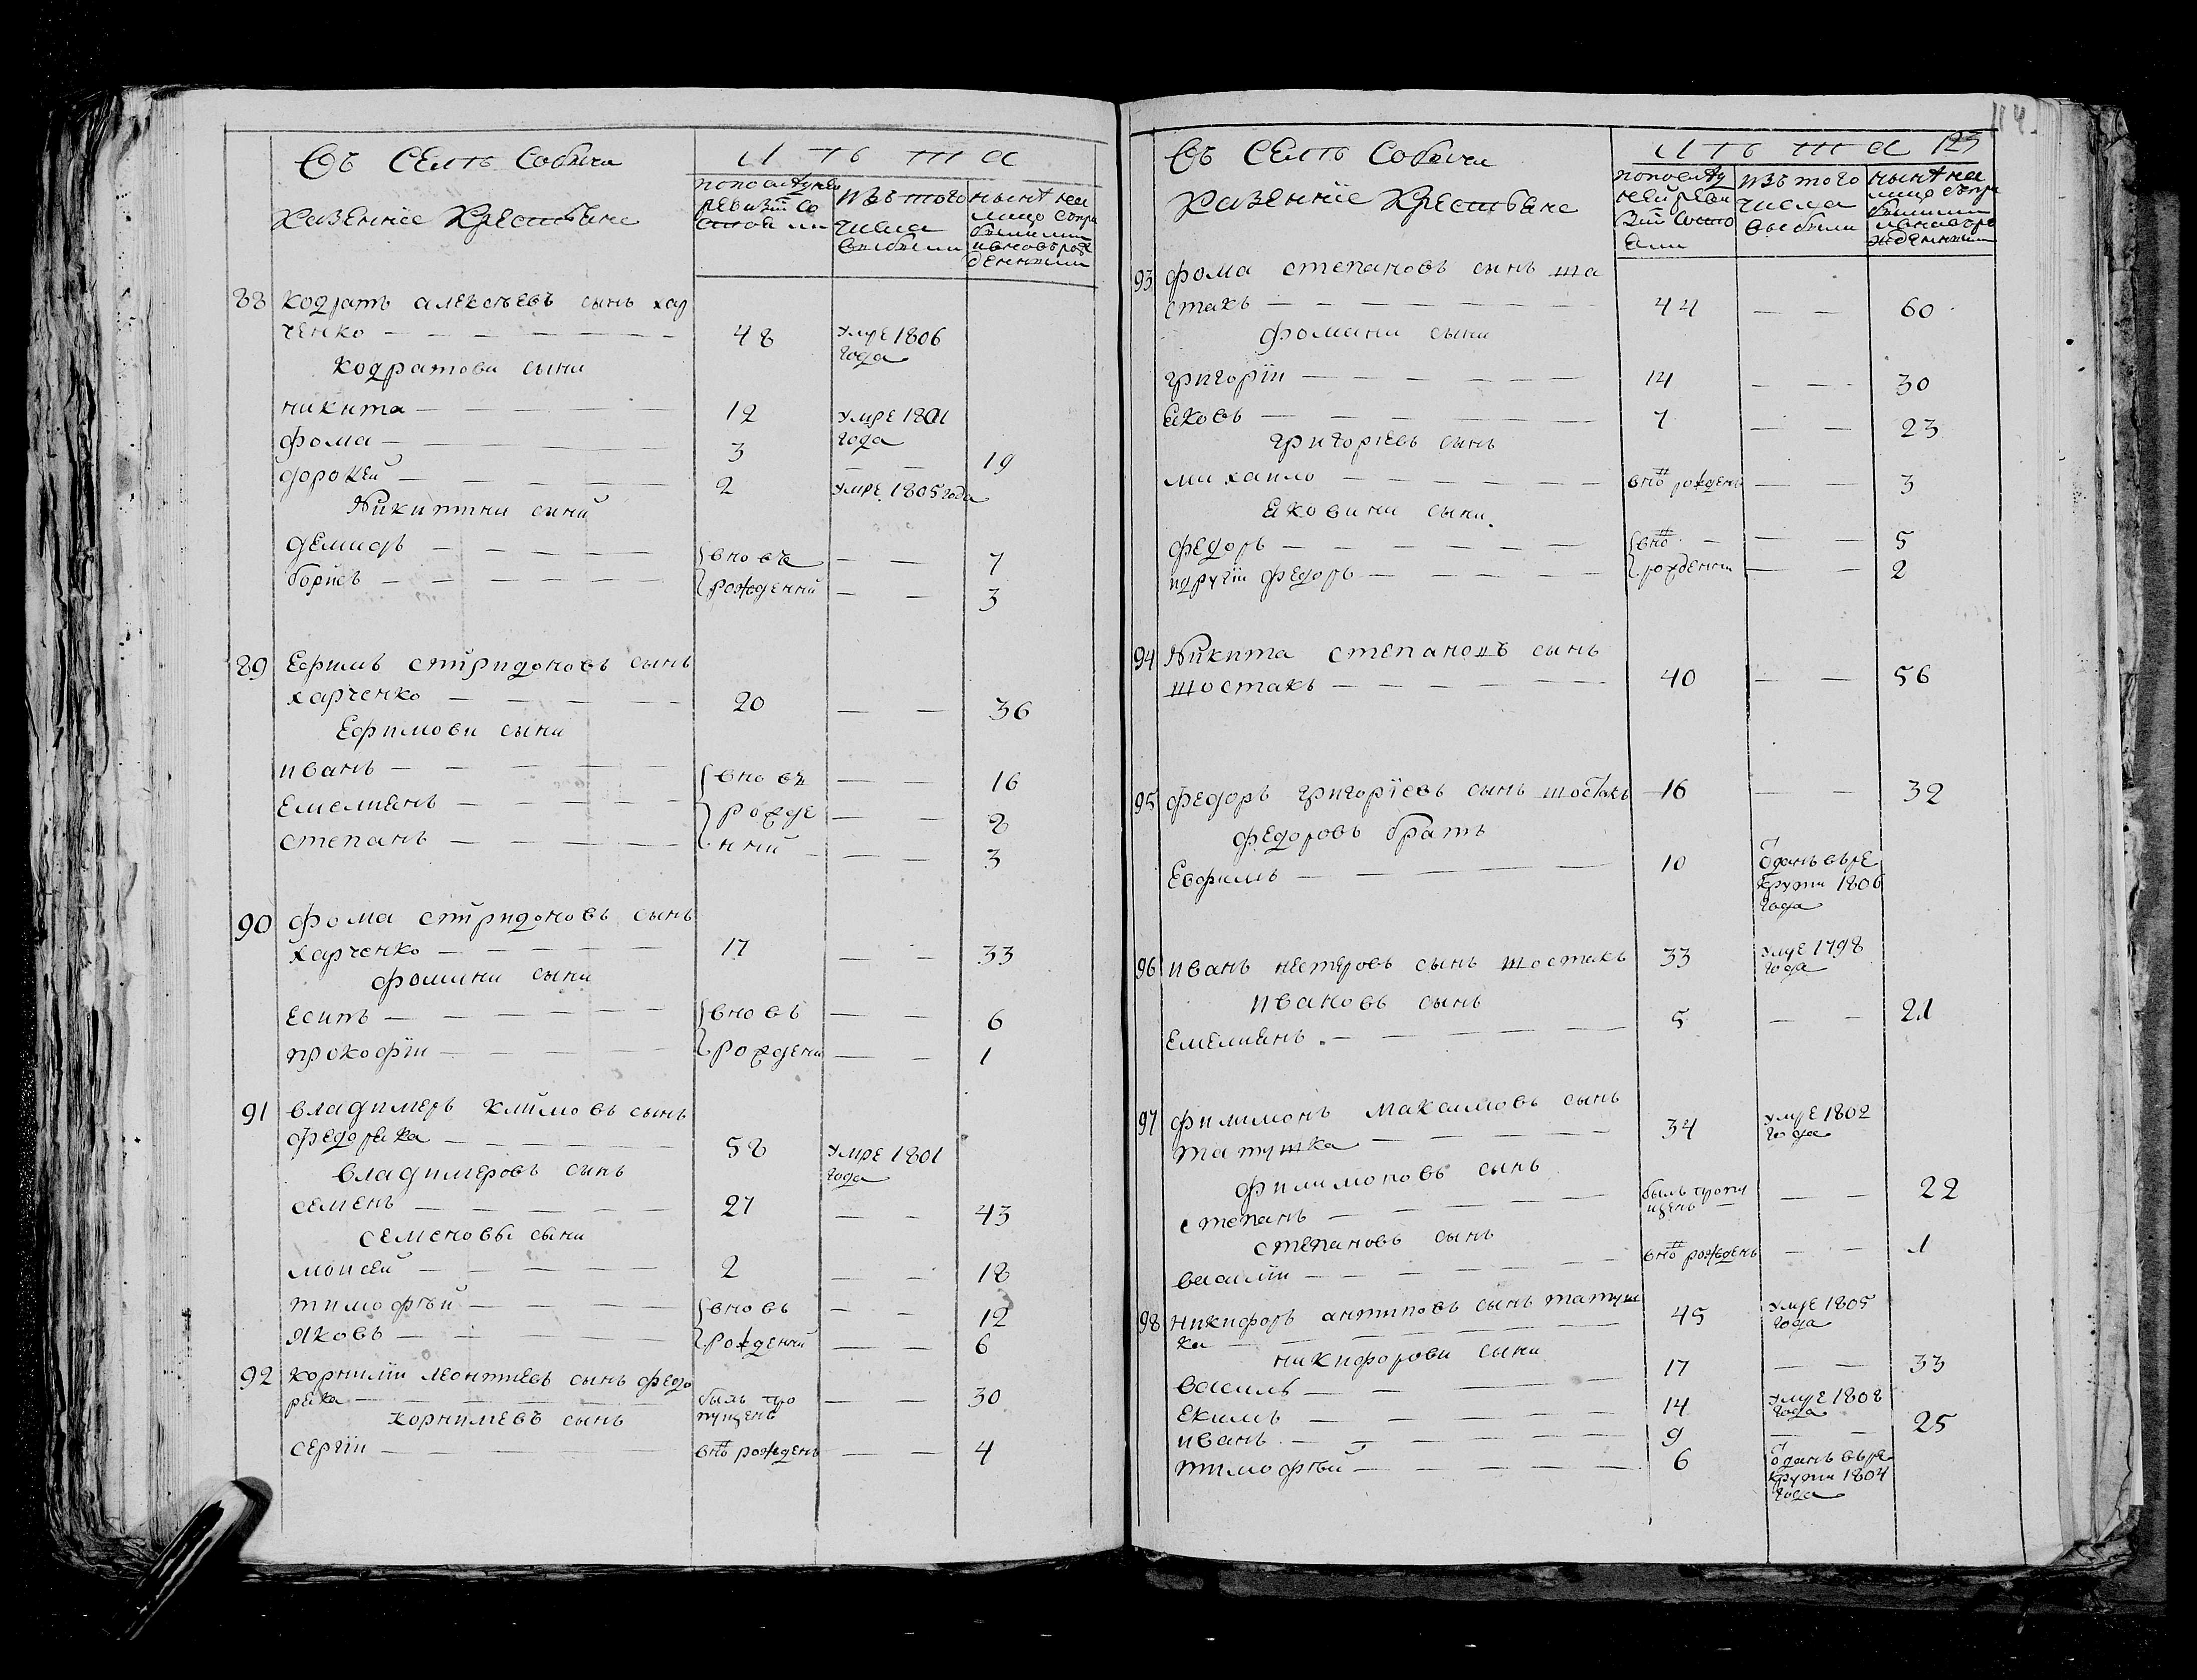 Въ Селѣ Собичи
Казенніе Крестьяне
Лѣта
по последней
ревизіи со
стояли
изъ того
числа
выбыли
нынѣ на
лицо съ при
былыми
и вновь рож
денными
88 кодратъ алексѣевъ сынъ хар
ченко — 48 умре 1806
года
кодратови сыни
никита — 12 умре 1801
года
фома — 3 — — 19
дорофей — 2 умре 1805 года
Никитини сыни
демидъ — вновъ — — 7
борисъ — рожденній — — 3
89 Ефимъ спиридоновъ сынъ
харченко — 20 — — 36
Ефимови сыни
иванъ — вновъ — — 16
Емелианъ — рожде — — 8
степанъ — нній — — 3
90 фома спиридоновъ сынъ
харченко — 17 — — 33
фомини сыни
Есипъ — вновъ — — 6
прокофіи — рождени — — 1
91 владимеръ климовъ сынъ
федоряка — 58 умре 1801
года
владимеровъ сынъ
семенъ — 27 — — 43
семеновы сыни
моисей — 2 — — 18
тимофѣй — вновь — — 12
Яковъ — рожденній — — 6
92 корниліи леонтиевъ сынъ федо
ряка — былъ про — — 30
пущенъ
корнилиевъ сынъ
сергіи — внѡ рожденъ — — 4
114.
Въ Селѣ Собичи
Казенніе Крестьяне
Лѣта 125
по послѣд
ней реви
зіи состо
яли
изъ того
числа
выбыли
нынѣ на
лицо съ при
былыми
и вновь ро
жденными
93 фома степановъ сынъ шо
стакъ — 44 — — 60
фомини сыни
григоріи — 14 — — 30
яковъ — 7 — — 23
григориевъ сынъ
михаило — внѡ рожденъ — — 3
яковини сыни
федоръ — внѡ — — 5
и другіи федоръ — рожденни — — 2
94 Никита степановъ сынъ
шостакъ — 40 — — 56
95 федоръ григоріевъ сынъ шостакъ 16 — — 32
федоровъ братъ
Евфимъ — 10 ѿданъ въ ре
крути 1806
года
96 иванъ нестеровъ сынъ шостакъ 33 умре 1798
года
ивановъ сынъ
Емелианъ — 5 — — 21
97 филимонъ максимовъ сынъ
татушка — 34 умре 1802
года
филимоновъ сынъ
степанъ — былъ пропу
щенъ — — 22
степановъ сынъ
василіи — внѡ рожденъ — — 1
98 никифоръ антиповъ сынъ татуш
ка — 45 умре 1805
года
никифорови сыни
василь — 17 — — 33
Екимъ — 14 умре 1808
года
иванъ — 9 — — 25
тимофѣй — 6 ѿданъ въ ре
крути 1804
года